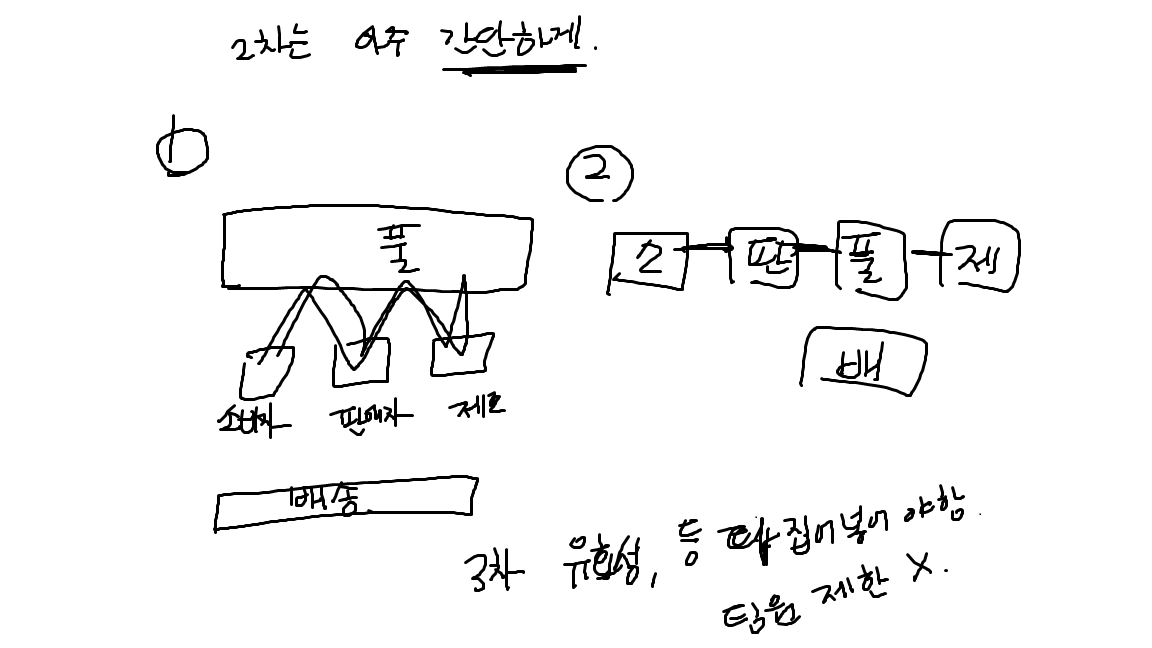 2차는 아주 간단하게.
1
플
소비자 판매자 제조
배송
2
소 판 플 제
배
3차 유효성, 등 다 집어넣어 야함.
팀원 제한 X.